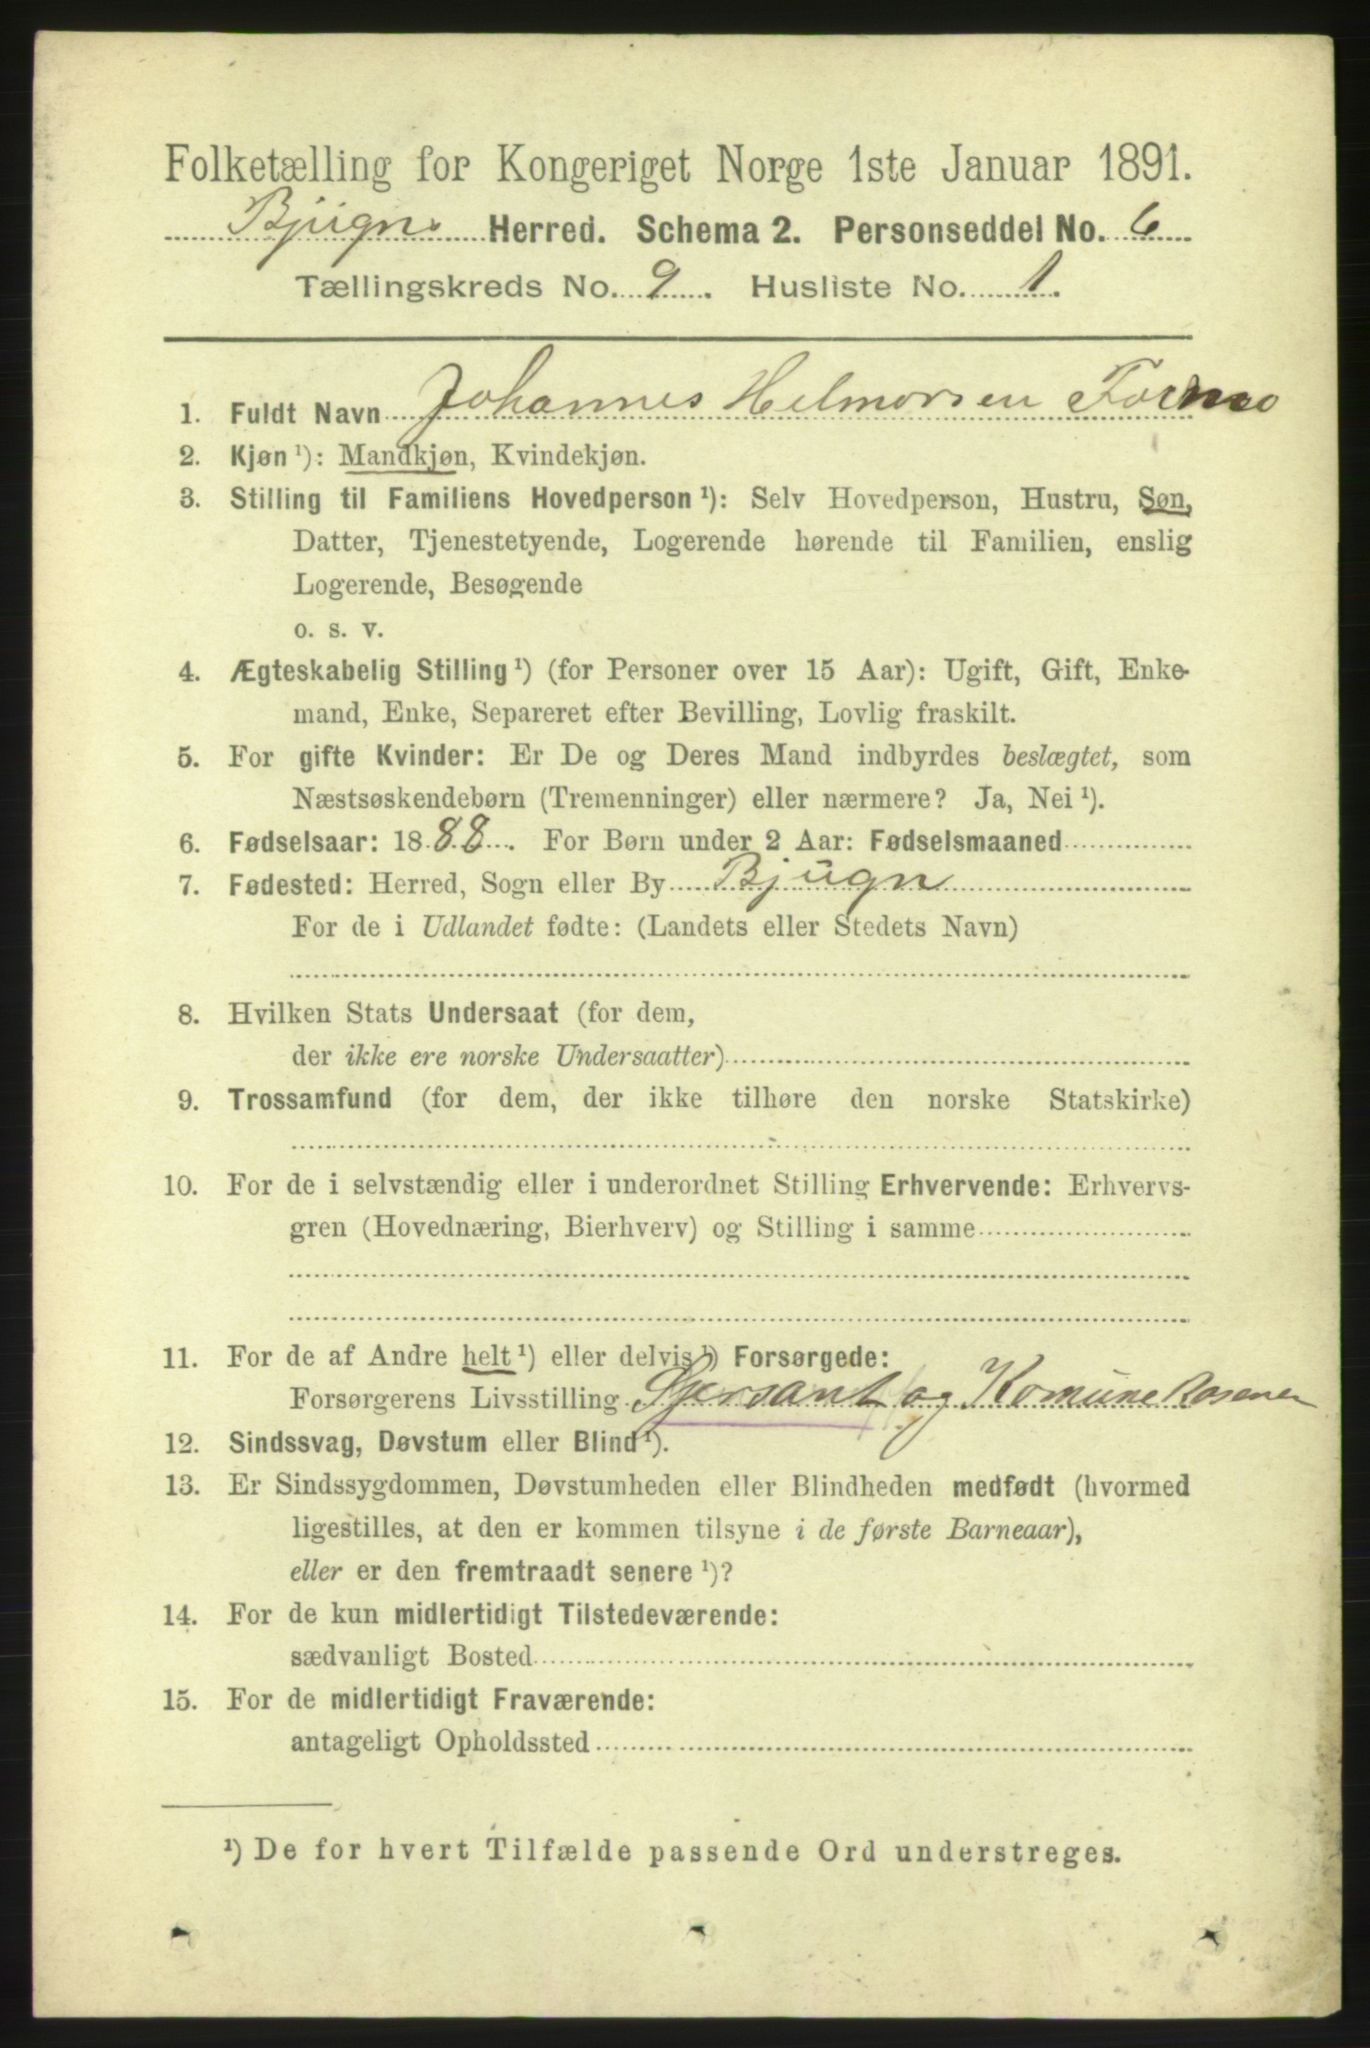 Folketælling for Kongeriget Norge 1ste Januar 1891.
Bjugn Herred. Schema 2. Personseddel No. 6
Tællingskreds No. 9. Husliste No. 1.
1. Fuldt Navn Johannes Helmersen
2. Kjøn ¹): Mandkjøn, Kvindekjøn.
3. Stilling til Familiens Hovedperson ¹): Selv Hovedperson, Hustru, Søn,
Datter, Tjenestetyende, Logerende hørende til Familien, enslig
Logerende, Besøgende
o. s. v.
4. Ægteskabelig Stilling ¹) (for Personer over 15 Aar): Ugift, Gift, Enke-
mand, Enke, Separeret efter Bevilling, Lovlig fraskilt.
5. For gifte Kvinder: Er De og Deres Mand indbyrdes beslægtet, som
Næstsøskendebørn (Tremenninger) eller nærmere? Ja, Nei ¹).
6. Fødselsaar: 1888. For Børn under 2 Aar: Fødselsmaaned
7. Fødested: Herred, Sogn eller By Bjugn
For de i Udlandet fødte: (Landets eller Stedets Navn)
8. Hvilken Stats Undersaat (for dem,
der ikke ere norske Undersaatter)
9. Trossamfund (for dem, der ikke tilhøre den norske Statskirke)
10. For de i selvstændig eller i underordnet Stilling Erhvervende: Erhvervs-
gren (Hovednæring, Bierhverv) og Stilling i samme
11. For de af Andre helt ¹) eller delvis ¹) Forsørgede:
Forsørgerens Livsstilling Sjersant og Komune
12. Sindssvag, Døvstum eller Blind ¹).
13. Er Sindssygdommen, Døvstumheden eller Blindheden medfødt (hvormed
ligestilles, at den er kommen tilsyne i de første Barneaar),
eller er den fremtraadt senere ¹)?
14. For de kun midlertidigt Tilstedeværende:
sædvanligt Bosted
15. For de midlertidigt Fraværende:
antageligt Opholdssted
¹) De for hvert Tilfælde passende Ord understreges.